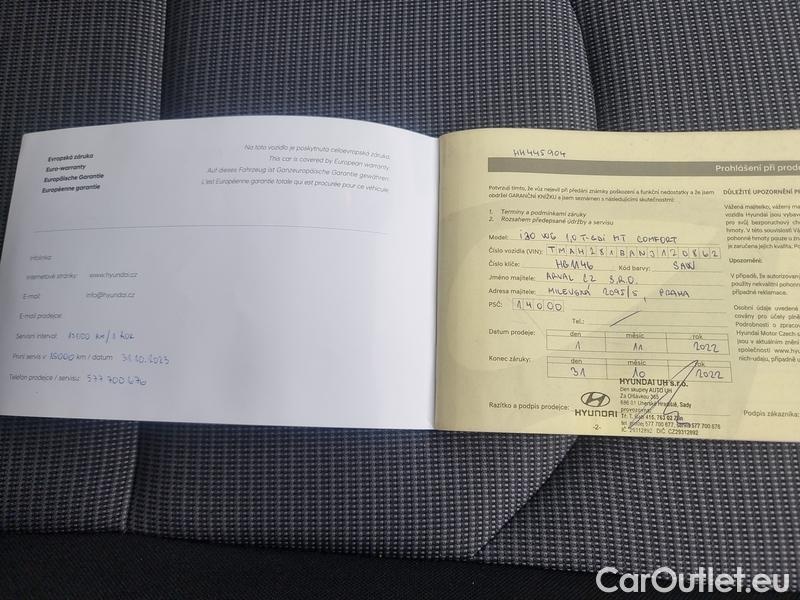 Evropská záruka
Euro-warranty
Europäische Garantie
Européenne garantie
Na toto vozidlo je poskytnuta celoevropská záruka.
This car is covered by European warranty.
Auf dieses Fahrzeug ist Ganzeuropäische Garantie gewähren.
L'est Européenne garantie totale qui est procurée pour ce véhicule.
Infolinka:
Internetové stránky: www.hyundai.cz
E-mail: info@hyundai.cz
E-mail prodejce:
Servisní interval: 15000 km / 1 rok
První servis v 15000 km / datum 31.10.2023
Telefon prodejce / servisu: 577 700 676
HH445904
Prohlášení při prode
Potvrzuji tímto, že vůz nejevil při předání známky poškození a funkční nedostatky a že jsem
obdržel GARANČNÍ KNÍŽKU a jsem seznámen s následujícími skutečnostmi:
1. Termíny a podmínkami záruky
2. Rozsahem předepsané údržby a servisu
Model: i30 WG 1,0 T-GDI MT COMFORT
Číslo vozidla (VIN): TMAH281BANJ120862
Číslo klíče: HB1146 Kód barvy: SAW
Jméno majitele: ARVAL CZ S.R.O.
Adresa majitele: MILEVSKÁ 2095/5, PRAHA
PSČ: 14000
Tel.:
Datum prodeje: den měsíc rok
1 11 2022
Konec záruky: den měsíc rok
31 10 2022
Razítko a podpis prodejce:
HYUNDAI
HYUNDAI UH s.r.o.
člen skupiny AUTO UH
Za Olšávkou 365
686 01 Uherské Hradiště, Sady
provozovna:
Tř. T. Bati 415, 763 02 Zlín
tel. prodej 577 700 677, servis 577 700 676
IČ: 29312892 DIČ: CZ29312892
-2-
DŮLEŽITÉ UPOZORNĚNÍ PR
Vážená majitelko, vážený ma
vozidla Hyundai jsou vybav
pro svůj bezporuchový ch
hmoty. V této souvislosti Vá
pohonné hmoty pouze u zna
je zaručena jejich kvalita. Po
Upozornění:
V případě, že autorizovan
použity nekvalitní pohonné
případné reklamace.
Osobní údaje uvedené
covány pro účely plně
Podrobnosti o zpracov
Hyundai Motor Czech s
jsou v aktuálním znění
společnosti www.hy
ních-udaju, případně u
Podpis zákazníka:
CarOutlet.eu